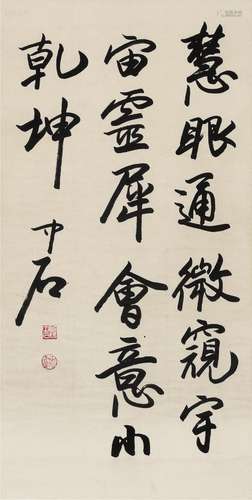 慧眼通微窺宇
宙靈犀會意小
乾坤 中石